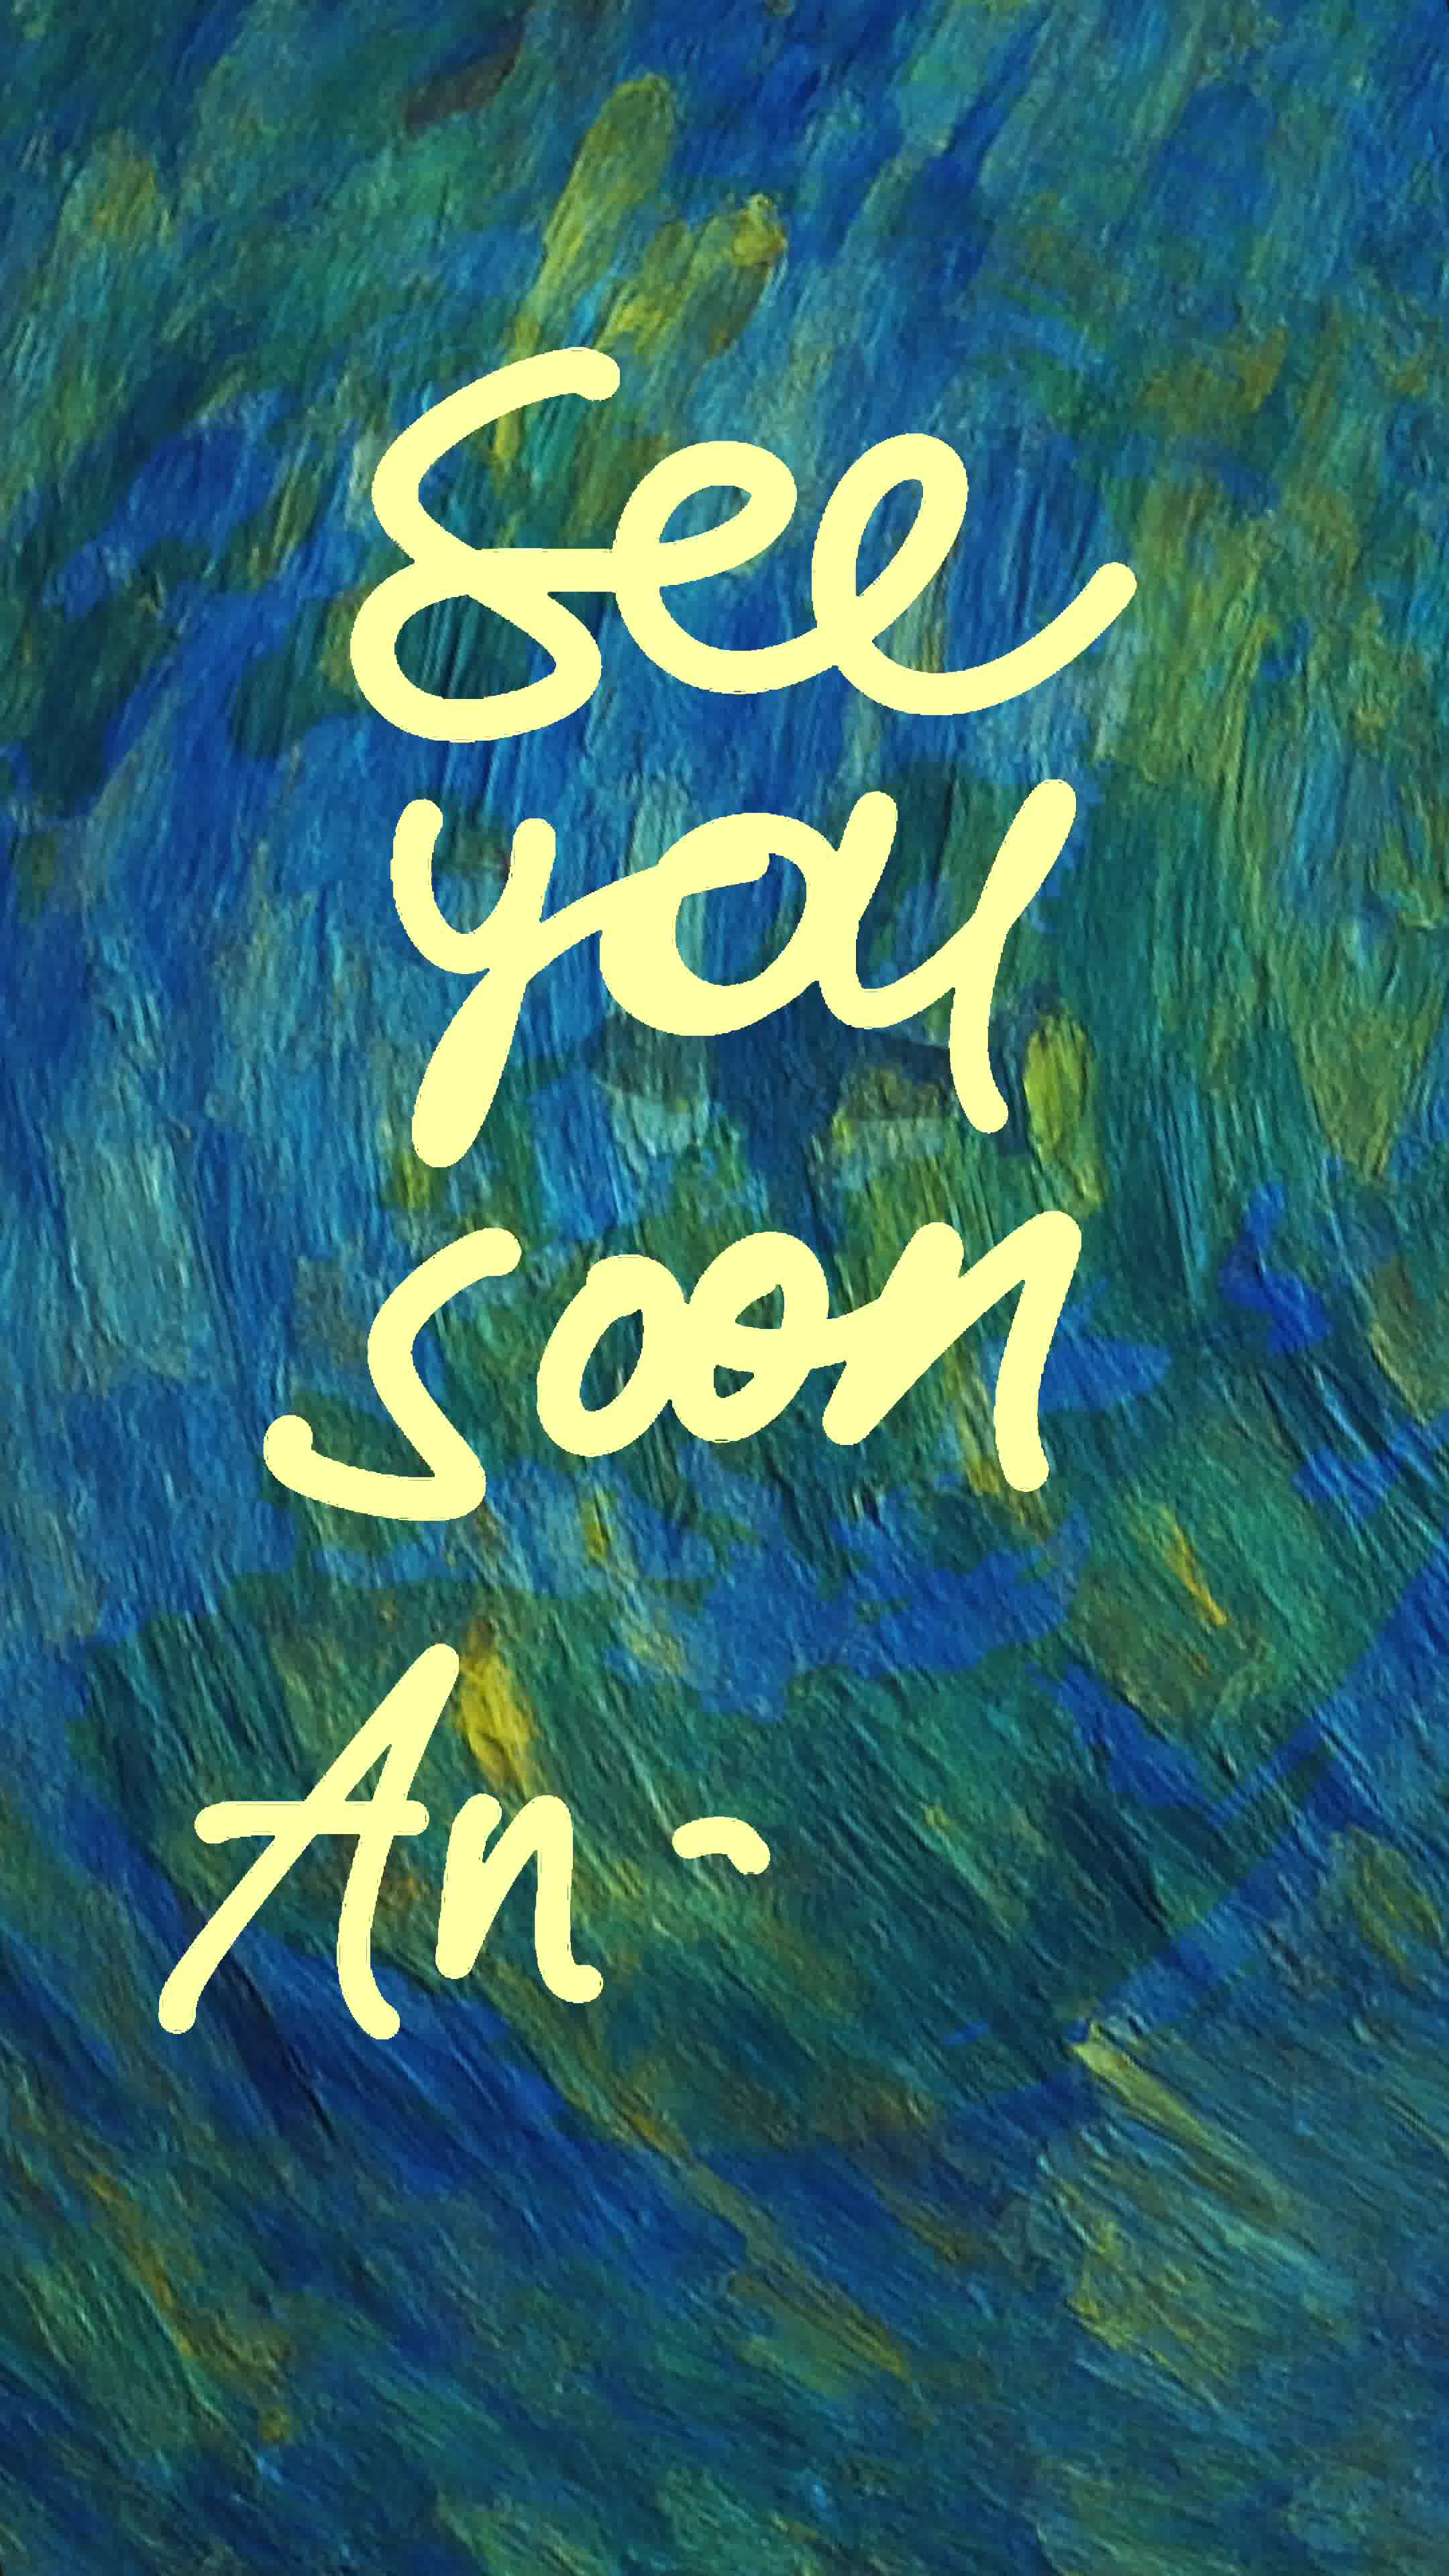 See
you
soon
An-